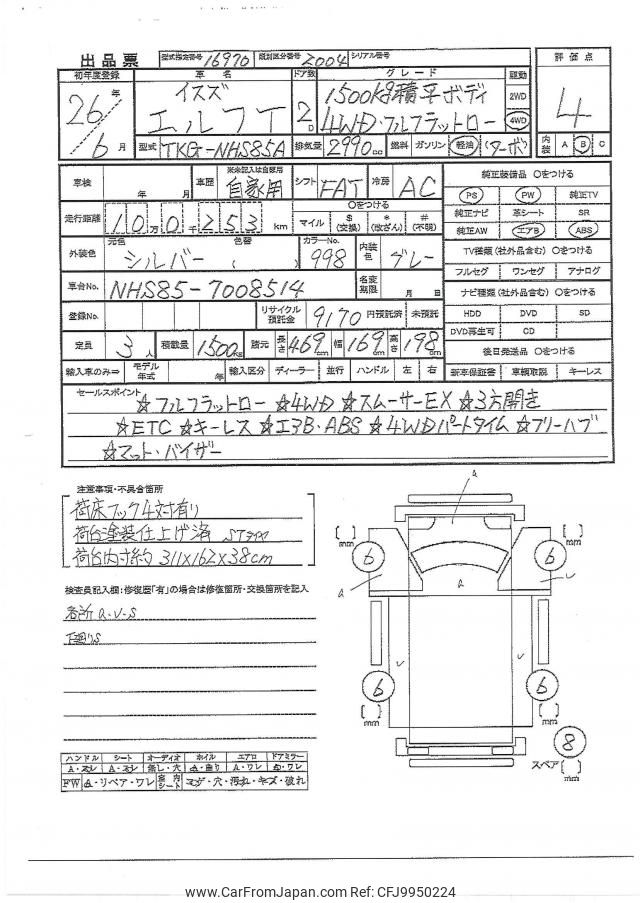 出品票 型式指定番号 16970 類別区分番号 2004 シリアル番号
初年度登録 車名 ドア数 グレード 駆動 評価点
26年 イスズ 2D 1500kg積平ボディ 2WD 4
6月 エルフT 4WD・フルフラットロー 4WD
型式 TKG-NHS85A 排気量 2990cc 燃料 ガソリン 軽油 (ターボ) 内装 A B C
車検 年 月 車歴 ※未記入は自家用 自家用 シフト FAT 冷房 AC 純正装備品 〇をつける
PS PW 純正TV
走行距離 10万0千253km 〇をつける マイル $(交換) *(改ざん) #(不明) 純正ナビ 革シート SR
純正AW エアB ABS
外装色 元色 シルバー 色替( ) カラーNo. 998 内装色 グレー TV種類(社外品含む) 〇をつける
フルセグ ワンセグ アナログ
車台No. NHS85-7008514 名変期限 月 日 ナビ種類(社外品含む) 〇をつける
登録No. リサイクル預託金 9170円預託済 未預託 HDD DVD SD
DVD再生可 CD
定員 3人 積載量 1500kg 諸元 長さ469cm 幅169cm 高さ198cm 後日発送品 〇をつける
輸入車のみ⇒ モデル年式 年 輸入区分 ディーラー 並行 ハンドル 左 右 新車保証書 車輌取説 キーレス
セールスポイント
☆フルフラットロー ☆4WD ☆スムーサーEX ☆3方開き
☆ETC ☆キーレス ☆エアB・ABS ☆4WDパートタイム ☆フリーハブ
☆マット・バイザー
注意事項・不具合箇所
荷床フック4対有り
荷台塗装仕上げ済 STタイヤ
荷台内寸約 311×162×38cm
検査員記入欄:修復歴「有」の場合は修復箇所・交換箇所を記入
各所 a.v.s
下廻りS
a
[ ] mm 6 [ ] mm 6
a a v
v v
6 [ ] mm 6 [ ] mm
8
スペア [ ] mm
ハンドル シート オーディオ ホイル エアロ ドアミラー
A・スレ A・スレ 無し・穴 A・曲り A・ワレ A・ワレ
FW A・リペア・ワレ 室内シート コゲ・穴・汚れ・キズ・破れ
www.CarFromJapan.com Ref: CFJ9950224